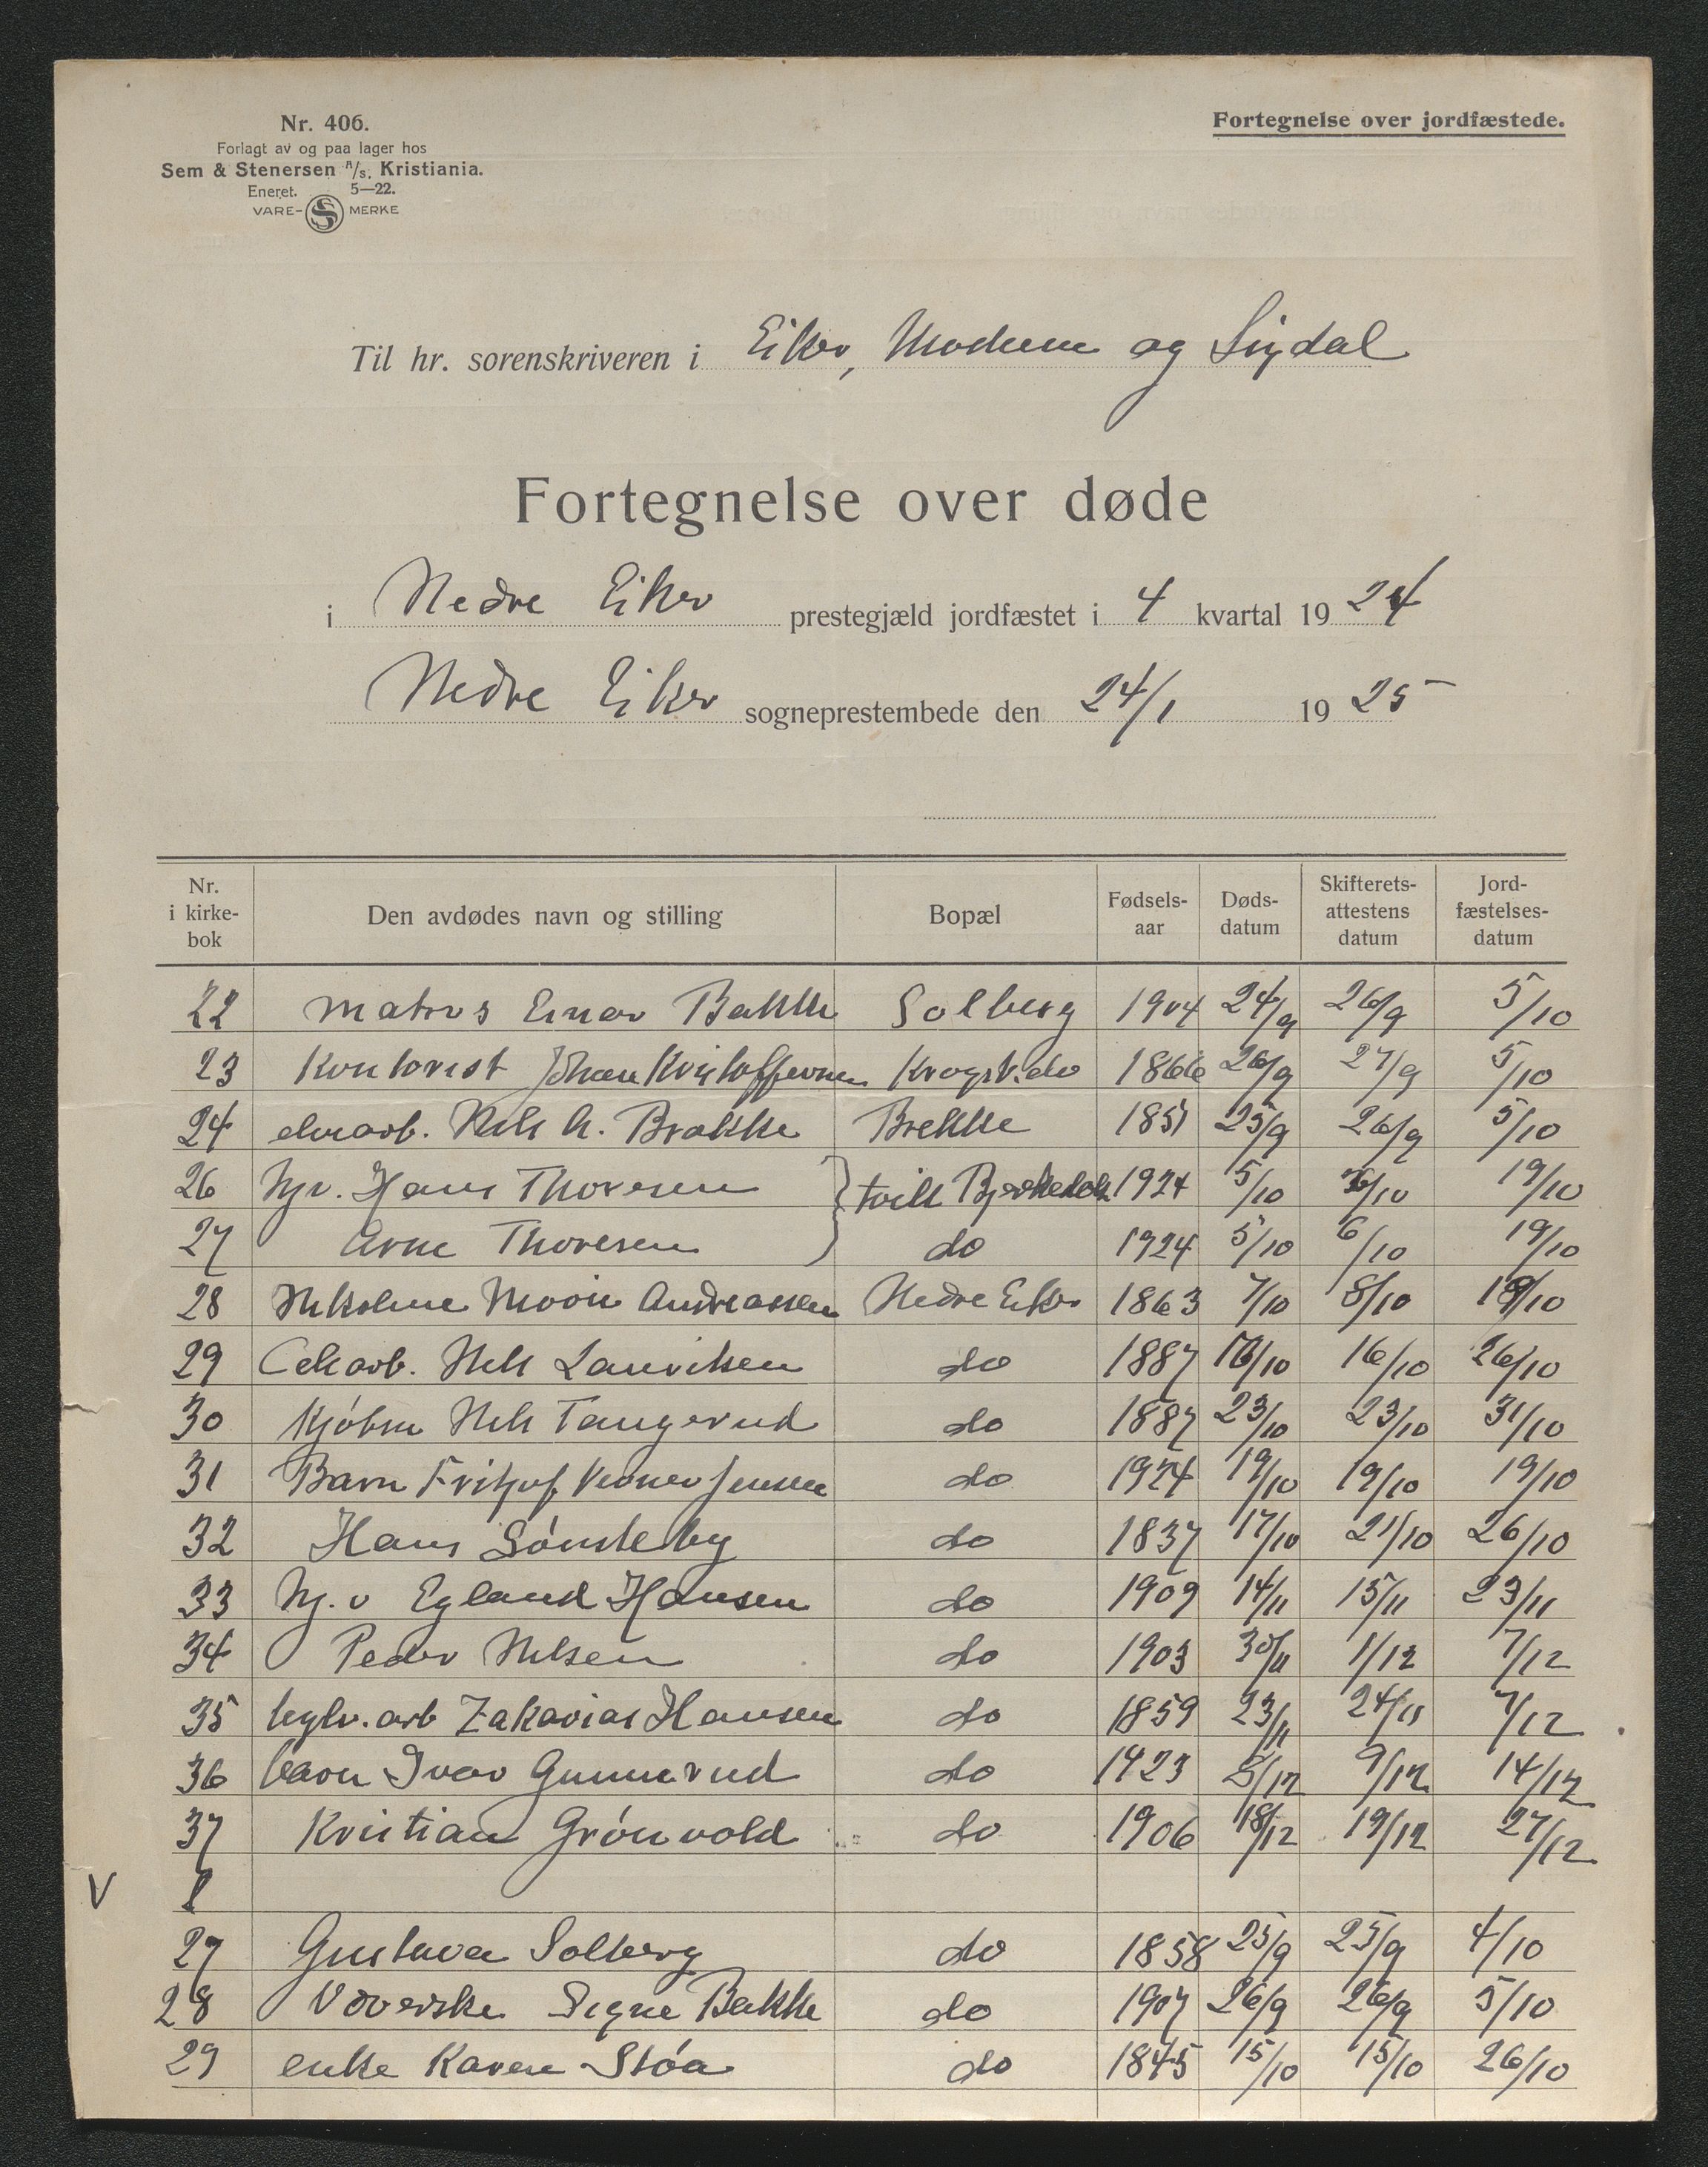 Nr. 406.
Forlagt av og paa lager hos
Sem & Stenersen A/S. Kristiania.
Eneret. 5—22.
VARE- SS MERKE
Fortegnelse over jordfæstede.
Til hr. sorenskriveren i Eiker, Modum og Sigdal
Fortegnelse over døde
i Nedre Eiker prestegjæld jordfæstet i 4 kvartal 1924
Nedre Eiker sogneprestembede den 24/1 1925
Nr. i kirke- bok Den avdødes navn og stilling Bopæl Fødsels- aar Døds- datum Skifterets- attestens datum Jord- fæstelses- datum
22 matros Einar Bakke Solberg 1904 24/9 26/9 5/10
23 Kontorist Johan Kristoffersen 1866 26/9 27/9 5/10
24 Nils A. Brekke Brekke 1851 25/9 26/9 5/10
26 Hans Thoresen } tvill 1924 5/10 6/10 19/10
27 Arne Thoresen do 1924 5/10 6/10 19/10
28 Andreassen Nedre Eiker 1863 7/10 8/10 18/10
29 Cel.arb. Nils Lauritsen do 1887 16/10 16/10 26/10
30 Kjøbm Nils Tangerud do 1887 23/10 23/10 31/10
31 Barn Fritjof Verner Jensen do 1924 19/10 19/10 19/10
32 Hans Sønsteby do 1837 17/10 21/10 26/10
33 Egland Hansen do 1909 14/11 15/11 23/11
34 Peder Nilsen do 1903 30/11 1/12 7/12
35 arb Zakarias Hansen do 1859 23/11 24/11 7/12
36 barn Ivar Gunnerud do 1923 5/12 9/12 14/12
37 Kristian Grønvold do 1906 18/12 19/12 27/12
V
27 Gustava Solberg do 1858 25/9 25/9 4/10
28 Væverske Signe Bakke do 1907 26/9 26/9 5/10
29 enke Karen Støa do 1845 15/10 15/10 26/10